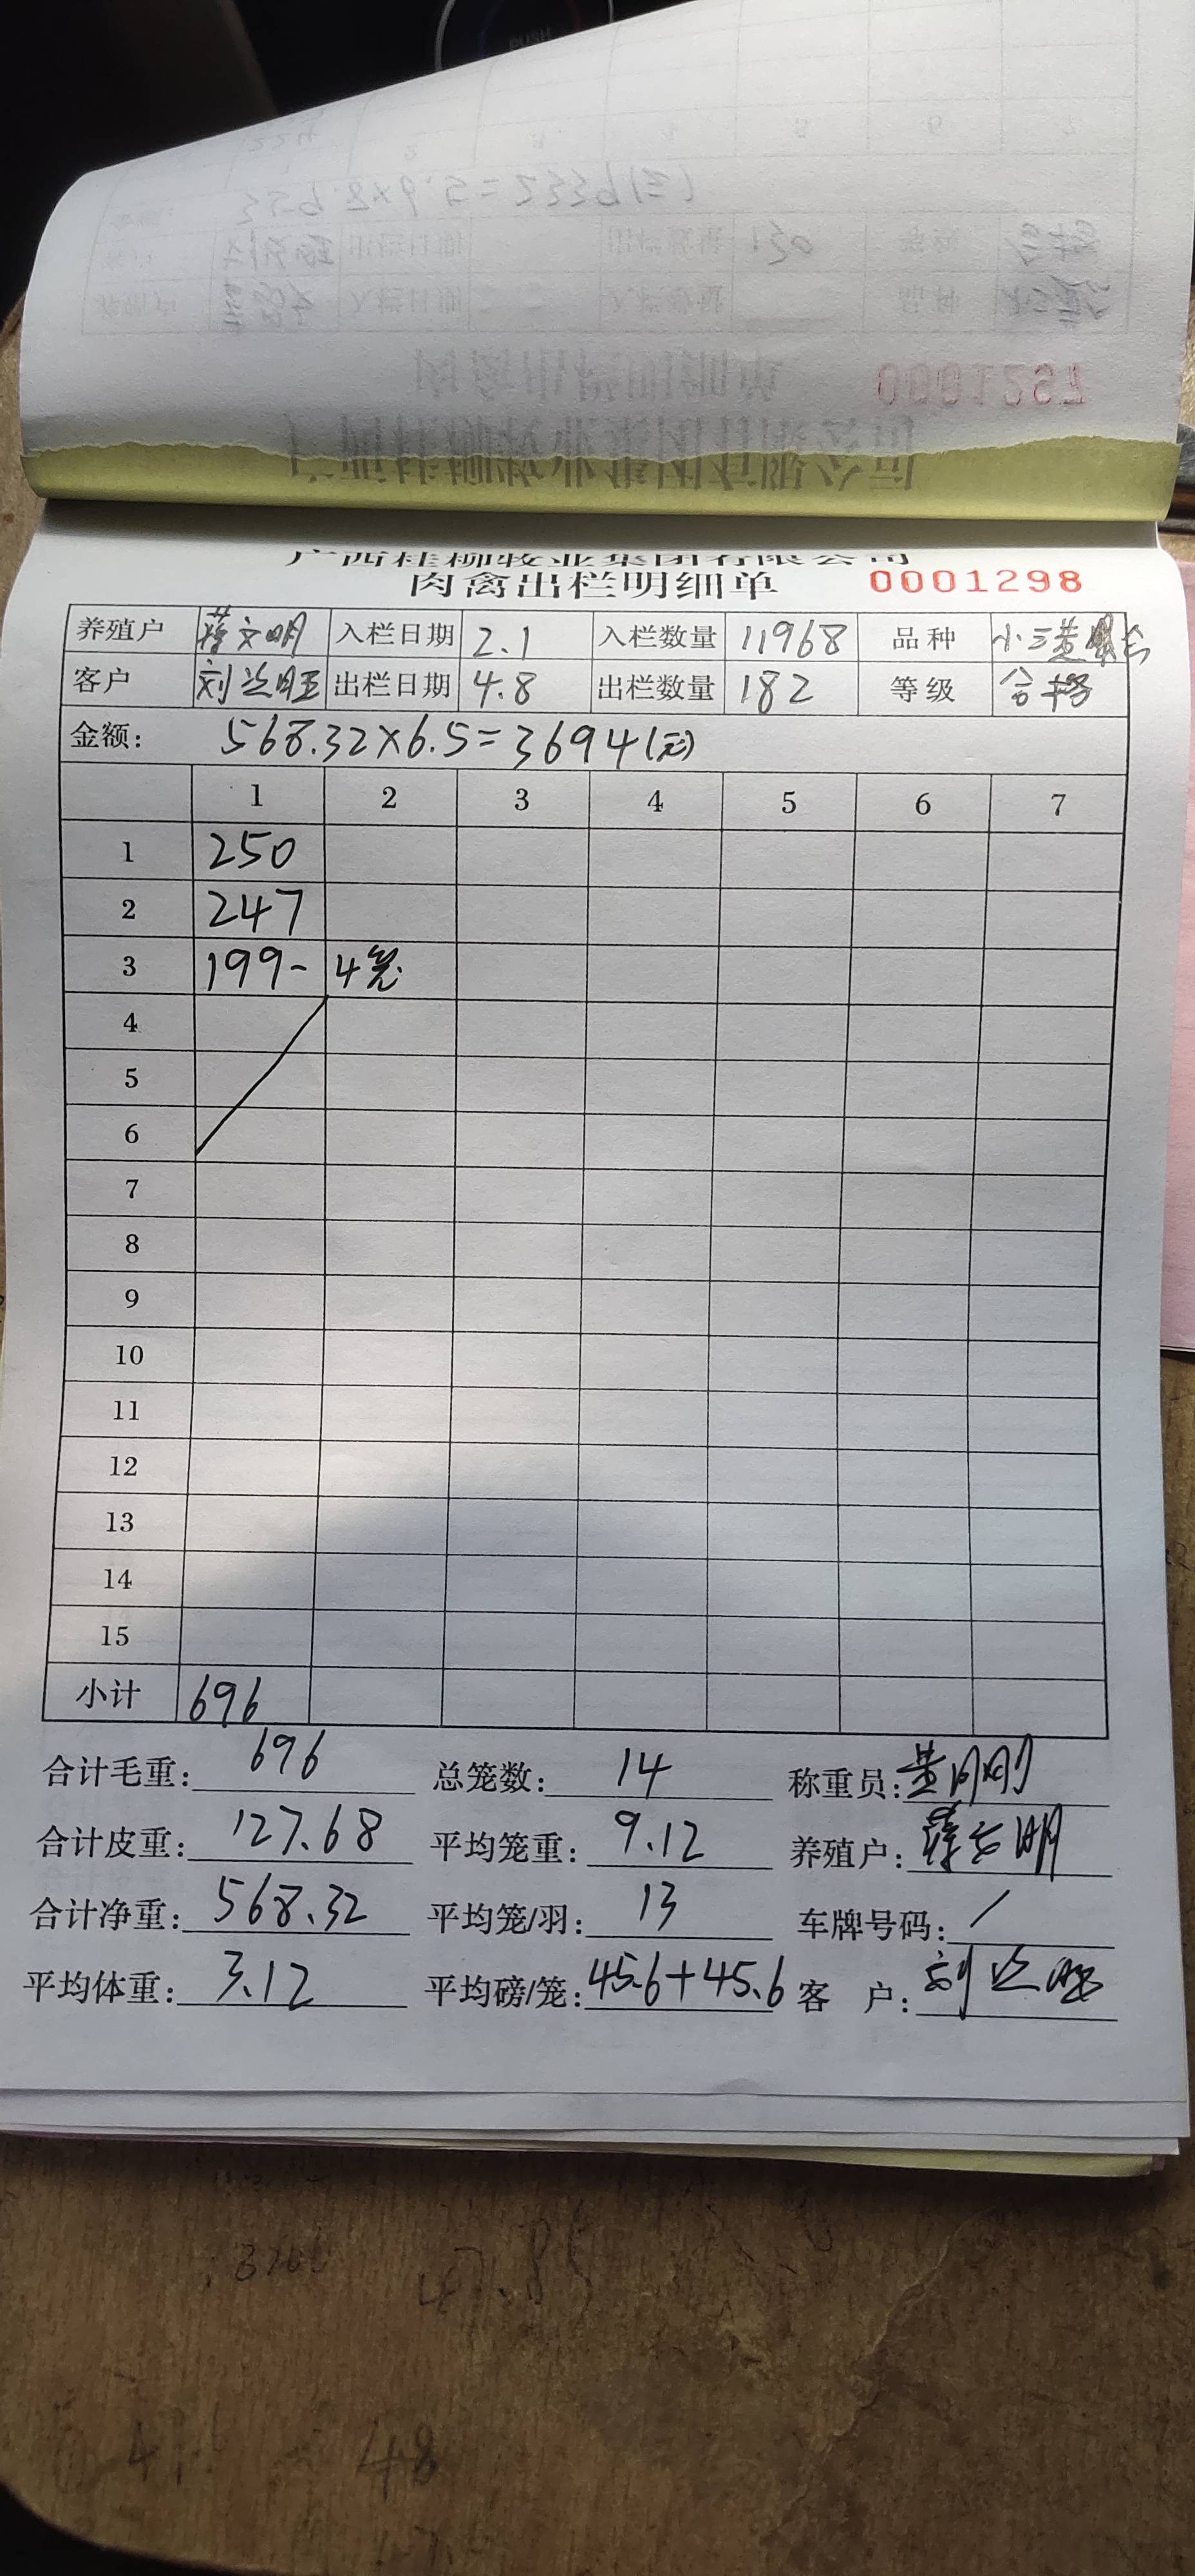 广西桂柳牧业集团有限公司
肉禽出栏明细单 0001298
养殖户 蒋文明 入栏日期 2.1 入栏数量 11968 品种 小三黄
客户 刘 旺 出栏日期 4.8 出栏数量 182 等级 合格
金额: 568.32×6.5=3694(元)
1 2 3 4 5 6 7
1 250
2 247
3 199- 4笼
4
5
6
7
8
9
10
11
12
13
14
15
小计 696
合计毛重: 696 总笼数: 14 称重员: 黄刚
合计皮重: 127.68 平均笼重: 9.12 养殖户: 蒋文明
合计净重: 568.32 平均笼/羽: 13 车牌号码: /
平均体重: 3.12 平均磅/笼: 45.6+45.6 客 户: 刘